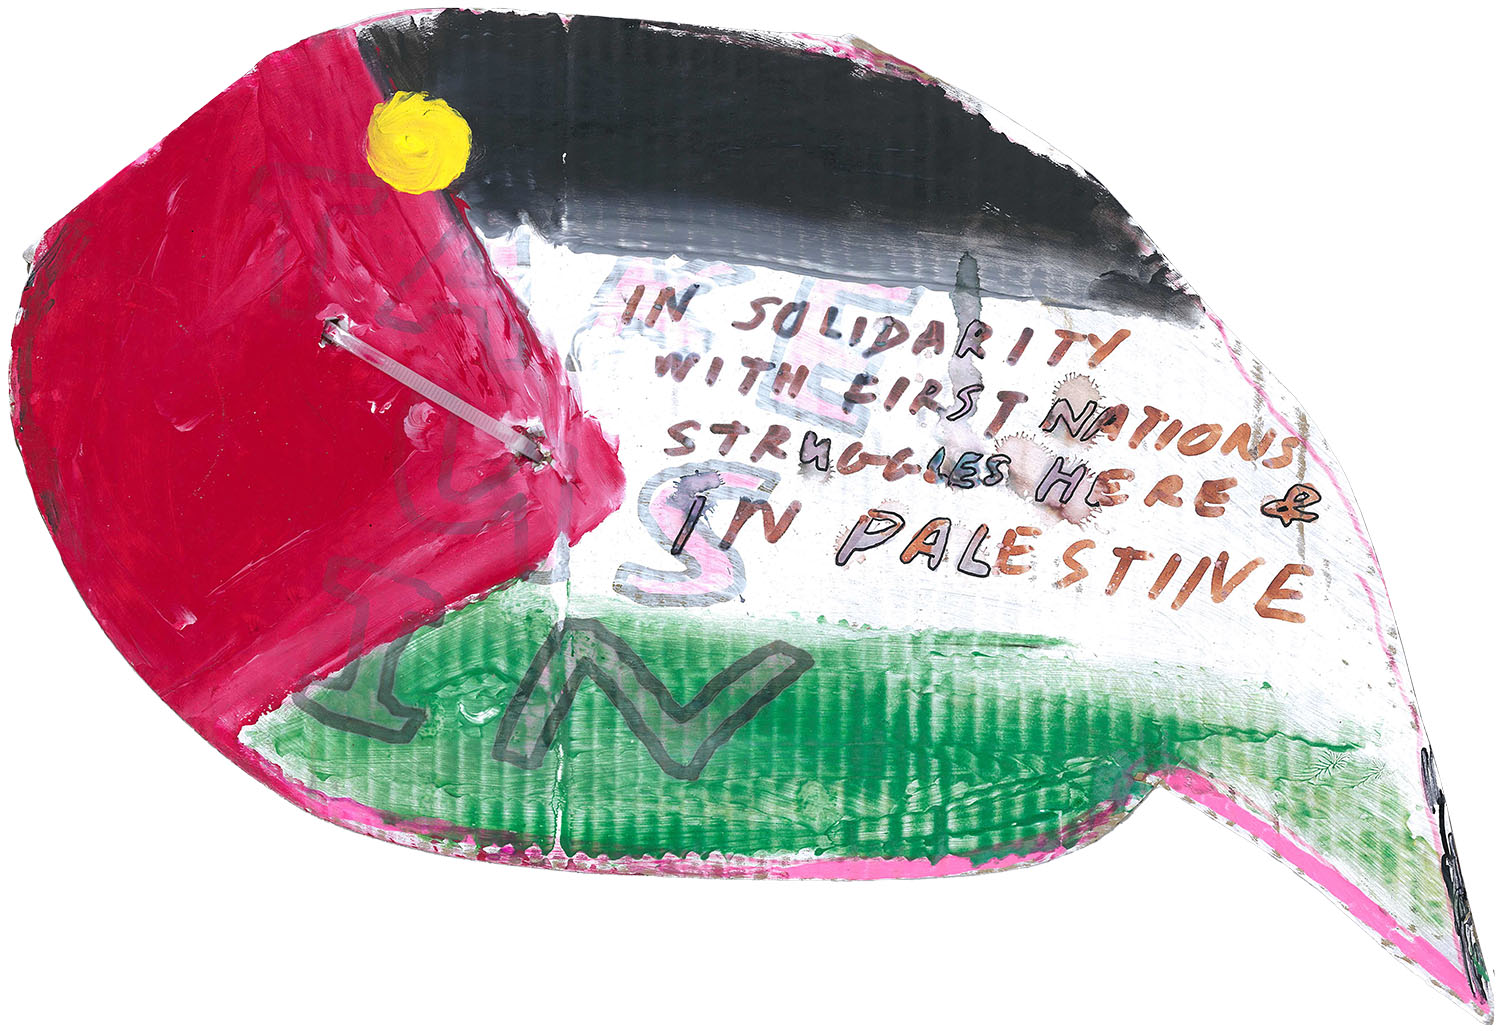 IN SOLIDARITY
WITH FIRST NATIONS
STRUGGLES HERE &
IN PALESTINE
TAKE
US
IN